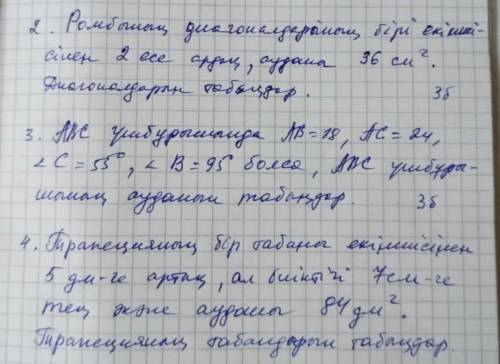 2. Ромбының диагональдарының бірі екінші-
сінен 2 есе артық, ауданы 36 см².
Диагоналдарын табыңдар. 3б
3. АВС үшбұрышында АВ=18, АС=24,
∠С=55°, ∠В=95° болса, АВС үшбұры-
шының ауданын табыңдар. 3б
4. Трапецияның бір табаны екіншісінен
5 дм-ге артық, ал биіктігі 7см-ге
тең және ауданы 84 дм².
Трапецияның табандарын табыңдар.